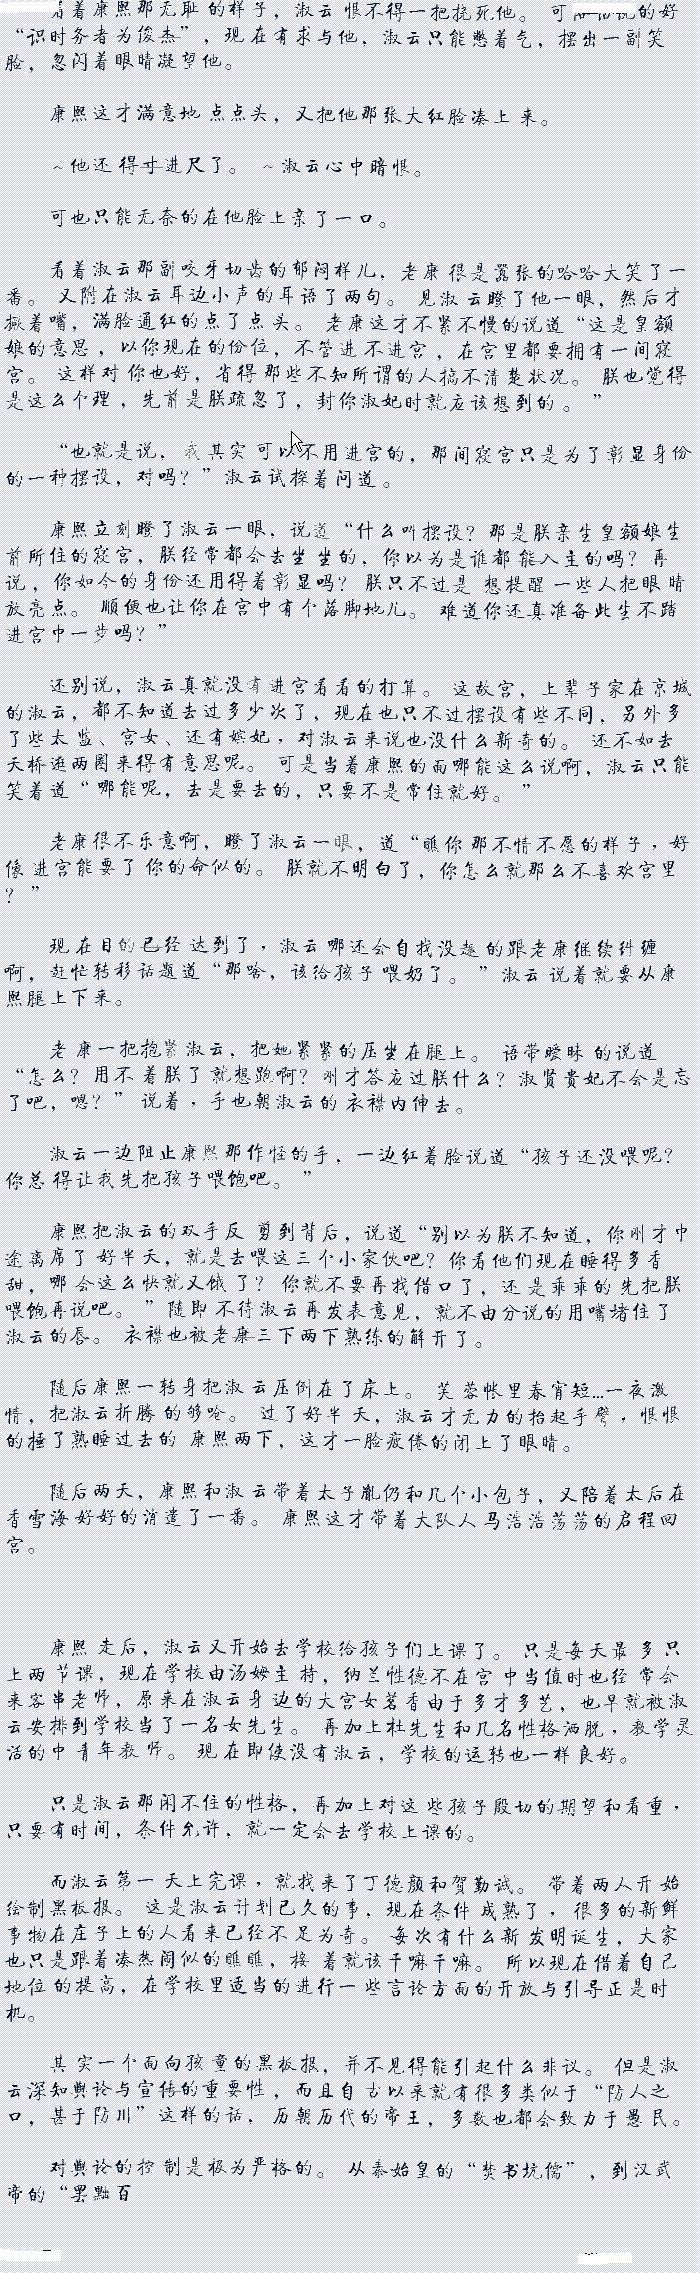 看着康熙那无耻的样子，淑云恨不得一把挠死他。 可俗话说的好
“识时务者为俊杰”，现在有求与他，淑云只能憋着气，摆出一副笑
脸，忽闪着眼睛凝望他。
康熙这才满意地点点头，又把他那张大红脸凑上来。
～他还得寸进尺了。 ～淑云心中暗恨。
可也只能无奈的在他脸上亲了一口。
看着淑云那副咬牙切齿的郁闷样儿，老康很是嚣张的哈哈大笑了一
番。 又附在淑云耳边小声的耳语了两句。 见淑云瞪了他一眼，然后才
撅着嘴，满脸通红的点了点头。 老康这才不紧不慢的说道“这是皇额
娘的意思，以你现在的份位，不管进不进宫，在宫里都要拥有一间寝
宫。 这样对你也好，省得那些不知所谓的人搞不清楚状况。 朕也觉得
是这么个理，先前是朕疏忽了，封你淑妃时就应该想到的。”
“也就是说，我其实可以不用进宫的，那间寝宫只是为了彰显身份
的一种摆设，对吗？”淑云试探着问道。
康熙立刻瞪了淑云一眼，说道“什么叫摆设？那是朕亲生皇额娘生
前所住的寝宫，朕经常都会去坐坐的，你以为是谁都能入主的吗？再
说，你如今的身份还用得着彰显吗？朕只不过是想提醒一些人把眼睛
放亮点。 顺便也让你在宫中有个落脚地儿。 难道你还真准备此生不踏
进宫中一步吗？”
还别说，淑云真就没有进宫看看的打算。 这故宫，上辈子家在京城
的淑云，都不知道去过多少次了，现在也只不过摆设有些不同，另外多
了些太监、宫女、还有嫔妃，对淑云来说也没什么新奇的。 还不如去
天桥逛两圈来得有意思呢。 可是当着康熙的面哪能这么说啊，淑云只能
笑着道“哪能呢，去是要去的，只要不是常住就好。”
老康很不乐意啊，瞪了淑云一眼，道“瞧你那不情不愿的样子，好
像进宫能要了你的命似的。 朕就不明白了，你怎么就那么不喜欢宫里
？”
现在目的已经达到了，淑云哪还会自找没趣的跟老康继续纠缠
啊，赶忙转移话题道“那啥，该给孩子喂奶了。”淑云说着就要从康
熙腿上下来。
老康一把抱紧淑云，把她紧紧的压坐在腿上。 语带暧昧的说道
“怎么？用不着朕了就想跑啊？刚才答应过朕什么？淑贤贵妃不会是忘
了吧，嗯？”说着，手也朝淑云的衣襟内伸去。
淑云一边阻止康熙那作怪的手，一边红着脸说道“孩子还没喂呢？
你总得让我先把孩子喂饱吧。”
康熙把淑云的双手反剪到背后，说道“别以为朕不知道，你刚才中
途离席了好半天，就是去喂这三个小家伙吧？你看他们现在睡得多香
甜，哪会这么快就又饿了？你就不要再找借口了，还是乖乖的先把朕
喂饱再说吧。”随即不待淑云再发表意见，就不由分说的用嘴堵住了
淑云的唇。 衣襟也被老康三下两下熟练的解开了。
随后康熙一转身把淑云压倒在了床上。 芙蓉帐里春宵短…一夜激
情，把淑云折腾的够呛。 过了好半天，淑云才无力的抬起手臂，恨恨
的捶了熟睡过去的康熙两下，这才一脸疲倦的闭上了眼睛。
随后两天，康熙和淑云带着太子胤礽和几个小包子，又陪着太后在
香雪海好好的消遣了一番。 康熙这才带着大队人马浩浩荡荡的启程回
宫。
康熙走后，淑云又开始去学校给孩子们上课了。 只是每天最多只
上两节课，现在学校由汤姆主持，纳兰性德不在宫中当值时也经常会
来客串老师，原来在淑云身边的大宫女茗香由于多才多艺，也早就被淑
云安排到学校当了一名女先生。 再加上杜先生和几名性格洒脱，教学灵
活的中青年教师。 现在即使没有淑云，学校的运转也一样良好。
只是淑云那闲不住的性格，再加上对这些孩子殷切的期望和看重，
只要有时间，条件允许，就一定会去学校上课的。
而淑云第一天上完课，就找来了丁德颜和贺勤试。 带着两人开始
绘制黑板报。 这是淑云计划已久的事，现在条件成熟了，很多的新鲜
事物在庄子上的人看来已经不足为奇。 每次有什么新发明诞生，大家
也只是跟着凑热闹似的瞧瞧，接着就该干嘛干嘛。 所以现在借着自己
地位的提高，在学校里适当的进行一些言论方面的开放与引导正是时
机。
其实一个面向孩童的黑板报，并不见得能引起什么非议。 但是淑
云深知舆论与宣传的重要性，而且自古以来就有很多类似于“防人之
口，甚于防川”这样的话，历朝历代的帝王，多数也都会致力于愚民。
对舆论的控制是极为严格的。 从秦始皇的“焚书坑儒”，到汉武
帝的“罢黜百